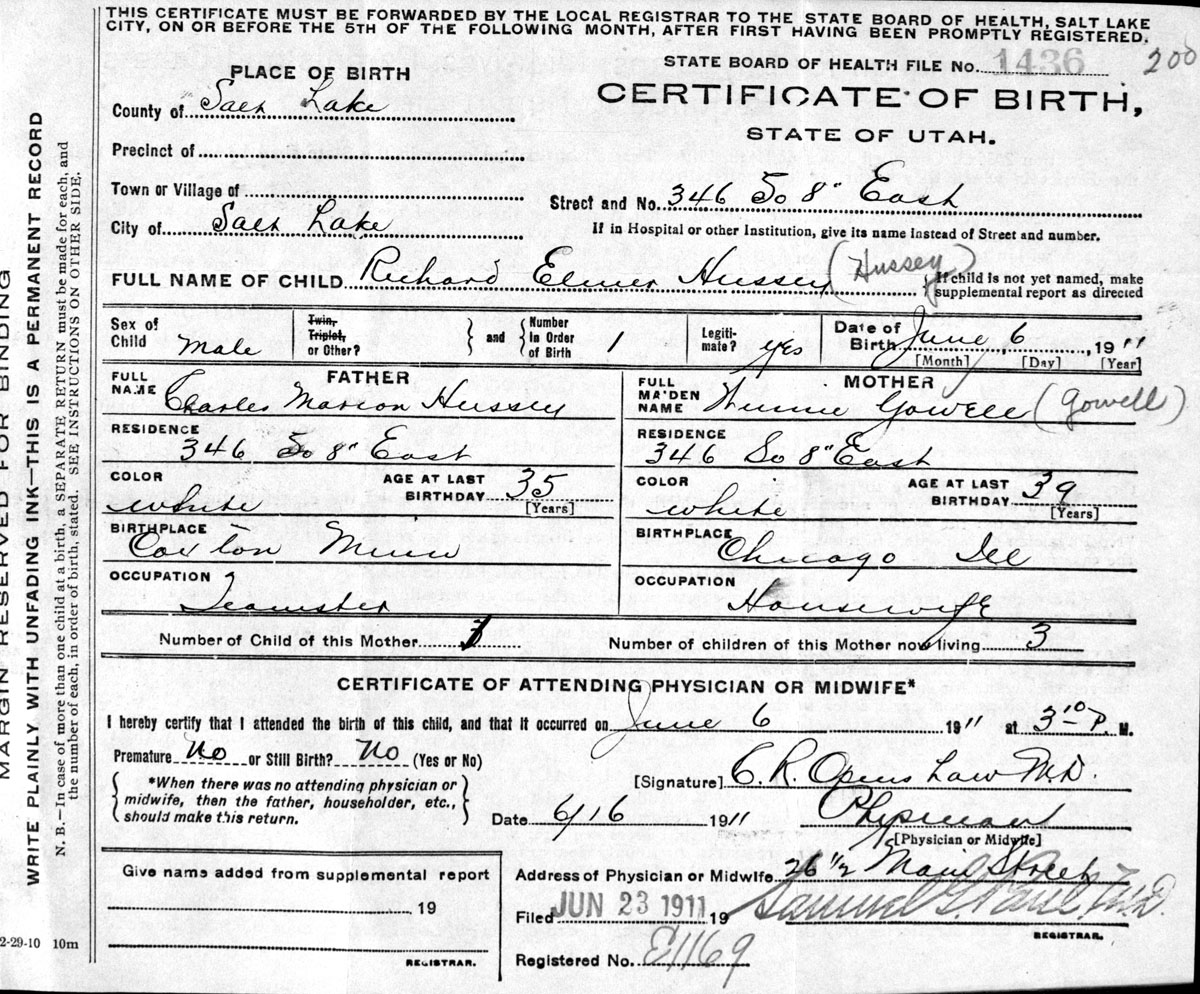 THIS CERTIFICATE MUST BE FORWARDED BY THE LOCAL REGISTRAR TO THE STATE BOARD OF HEALTH, SALT LAKE
CITY, ON OR BEFORE THE 5TH OF THE FOLLOWING MONTH, AFTER FIRST HAVING BEEN PROMPTLY REGISTERED.
STATE BOARD OF HEALTH FILE No. 1436 200
PLACE OF BIRTH
CERTIFICATE OF BIRTH,
STATE OF UTAH.
County of Salt Lake
Precinct of
Town or Village of
Street and No. 346 So 8" East
City of Salt Lake
If in Hospital or other Institution, give its name instead of Street and number.
FULL NAME OF CHILD Richard Elmer Hussey (Hussey) } If child is not yet named, make
supplemental report as directed
Sex of Child Male
Twin, Triplet, or Other?
and
Number in Order of Birth 1
Legiti- mate? yes
Date of Birth June 6, 1911
[Month] [Day] [Year]
FATHER
FULL NAME Charles Marion Hussey
MOTHER
FULL MAIDEN NAME Winnie Gowell (Gowell)
RESIDENCE 346 So 8" East
RESIDENCE 346 So 8" East
COLOR White
AGE AT LAST BIRTHDAY 35 [Years]
COLOR White
AGE AT LAST BIRTHDAY 39 [Years]
BIRTHPLACE Minn
BIRTHPLACE Chicago Ill
OCCUPATION Teamster
OCCUPATION Housewife
Number of Child of this Mother
Number of children of this Mother now living 3
CERTIFICATE OF ATTENDING PHYSICIAN OR MIDWIFE*
I hereby certify that I attended the birth of this child, and that it occurred on June 6 1911 at 3 10 P. M.
Premature No or Still Birth? No (Yes or No)
*When there was no attending physician or
midwife, then the father, householder, etc.,
should make this return.
[Signature] C. R. Openshaw M.D.
Date 6/16 1911 Physician
[Physician or Midwife]
Give name added from supplemental report
19
REGISTRAR.
Address of Physician or Midwife 26 1/2 Main Street
Filed JUN 23 1911 19 Samuel G. Paul M.D.
REGISTRAR.
Registered No. E1169
MARGIN RESERVED FOR BINDING
WRITE PLAINLY WITH UNFADING INK—THIS IS A PERMANENT RECORD
N. B.—In case of more than one child at a birth, a SEPARATE RETURN must be made for each, and
the number of each, in order of birth, stated. SEE INSTRUCTIONS ON OTHER SIDE.
2-29-10 10m